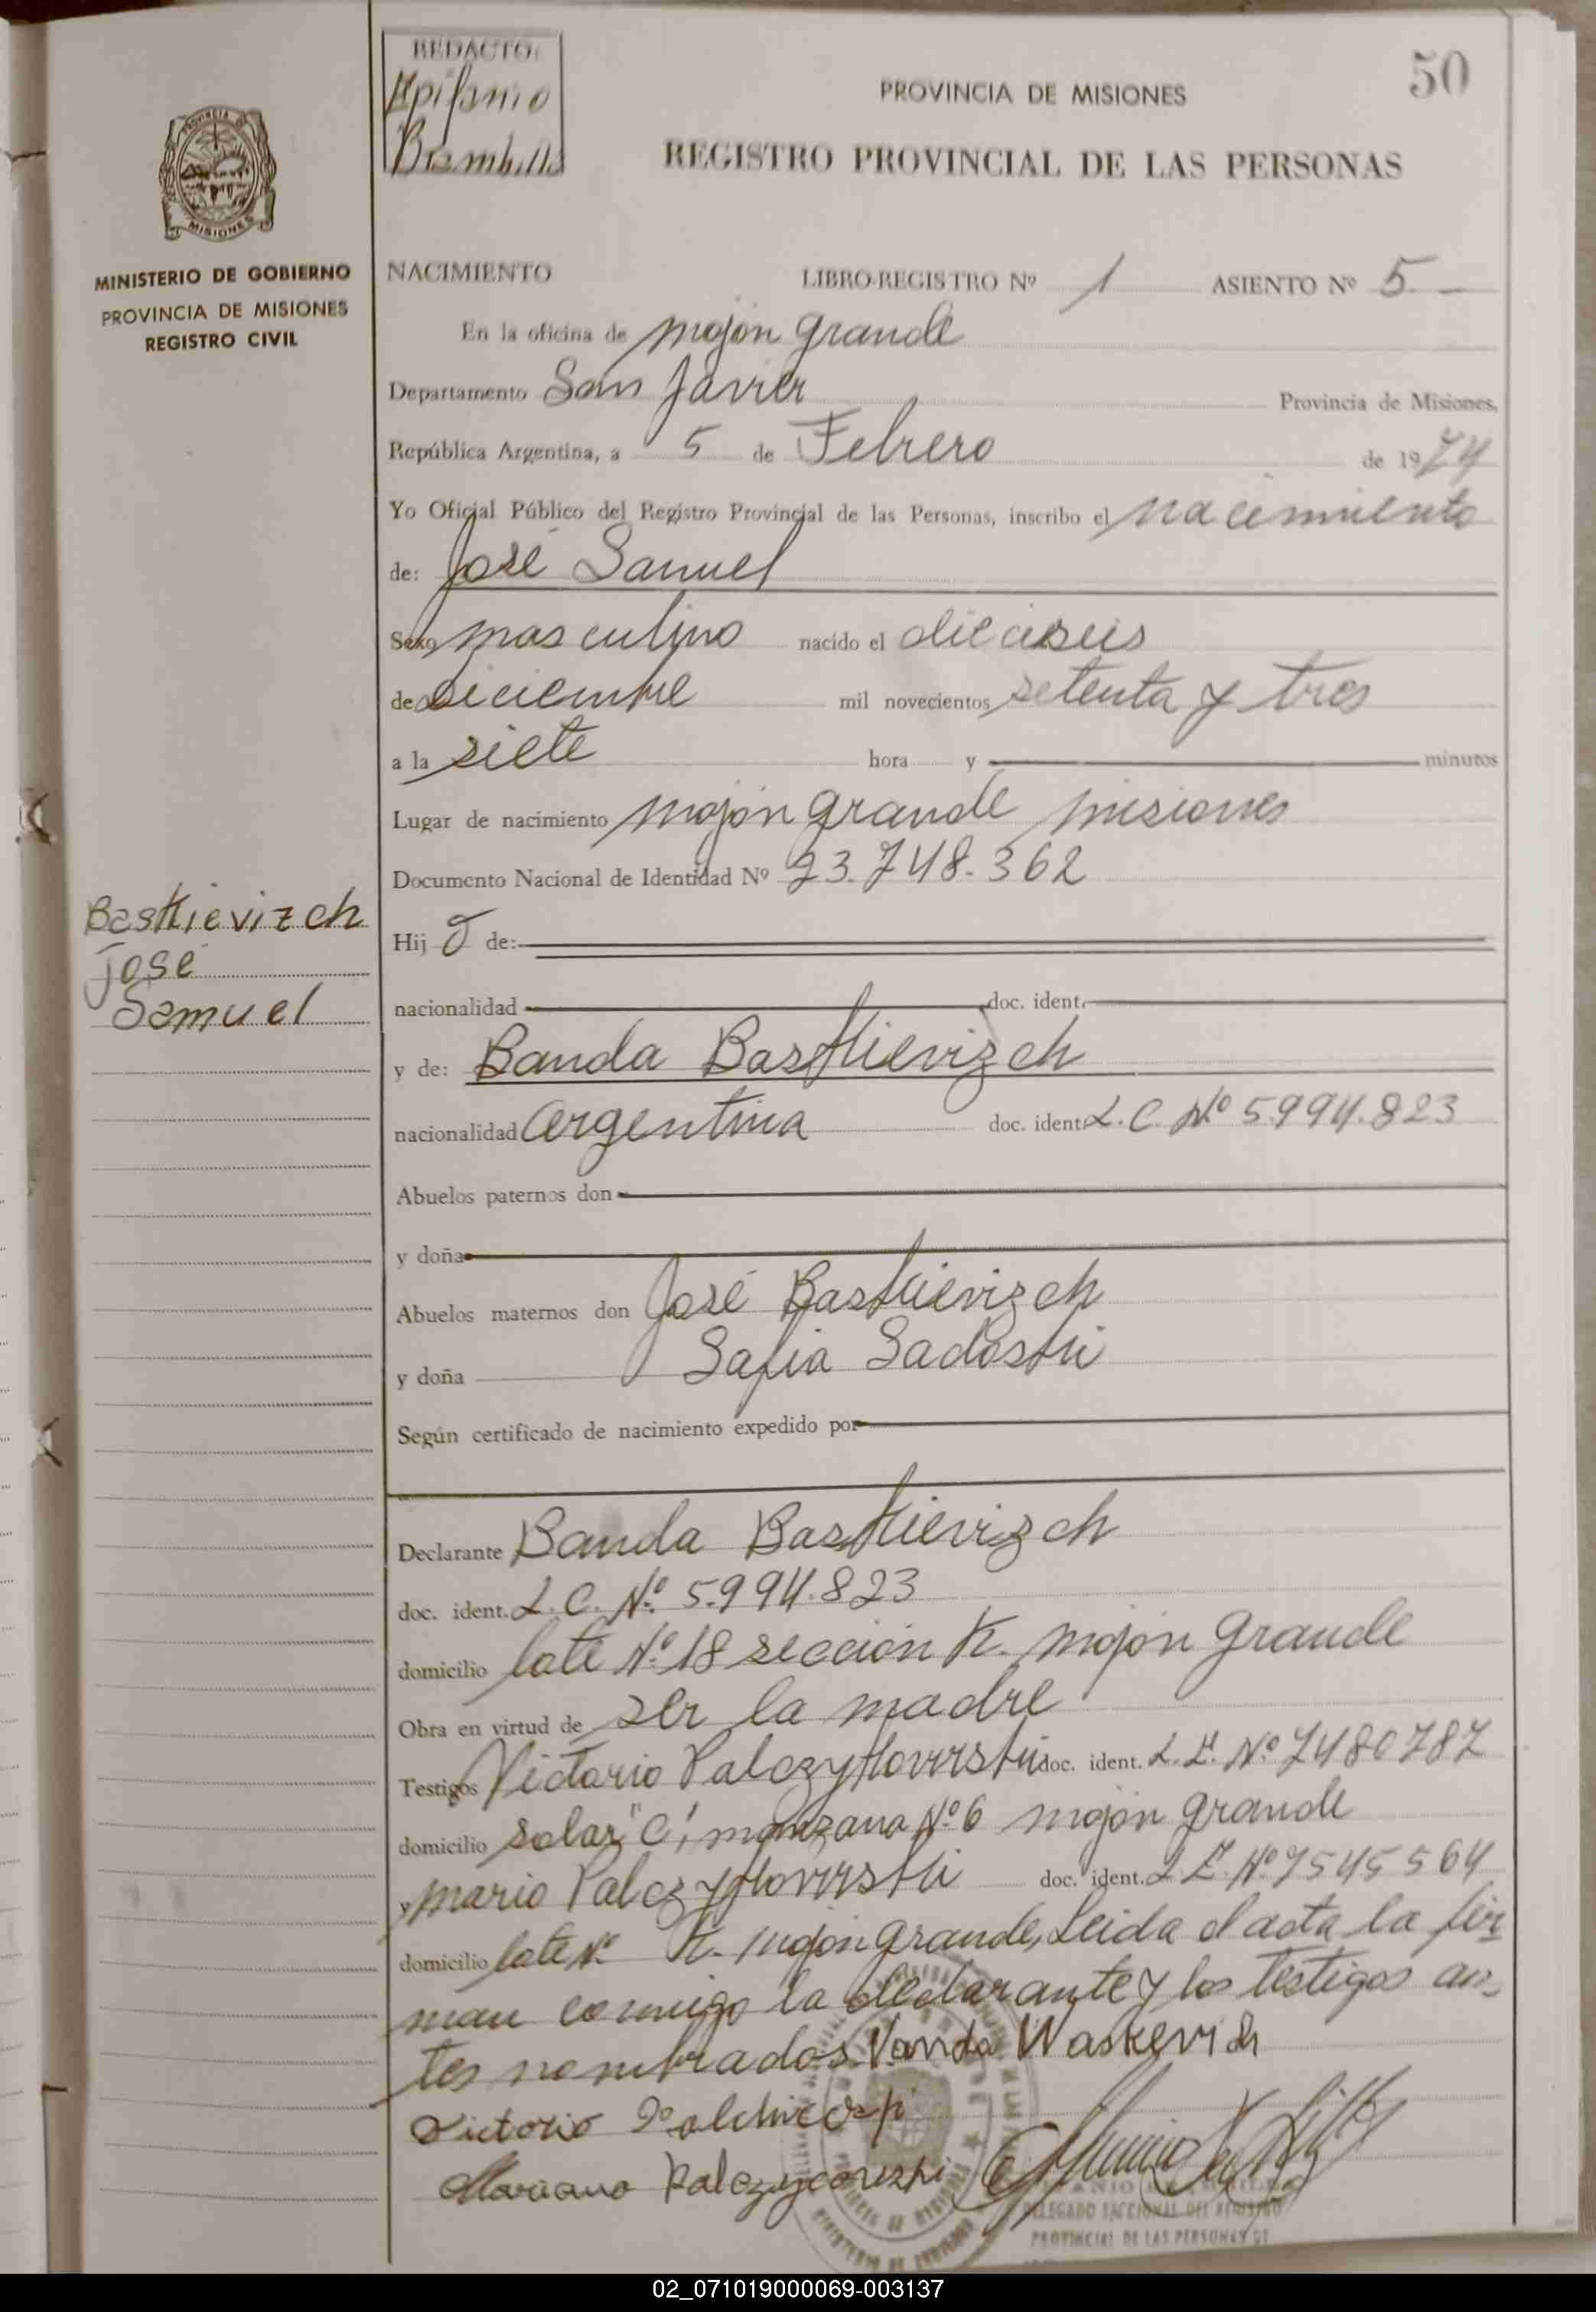 REDACTO:
Epifanio
Brambilla
50
PROVINCIA DE MISIONES
REGISTRO PROVINCIAL DE LAS PERSONAS
PROVINCIA DE
MISIONES
MINISTERIO DE GOBIERNO
PROVINCIA DE MISIONES
REGISTRO CIVIL
NACIMIENTO LIBRO-REGISTRO Nº 1 ASIENTO Nº 5.—
En la oficina de Mojón Grande
Departamento San Javier Provincia de Misiones,
República Argentina, a 5 de Febrero de 1974
Yo Oficial Público del Registro Provincial de las Personas, inscribo el nacimiento
de: José Samuel
Sexo masculino nacido el dieciseis
de Diciembre mil novecientos setenta y tres
a la siete hora y minutos
Lugar de nacimiento Mojón Grande Misiones
Documento Nacional de Identidad Nº 23.748.362
Bastkievizch
José
Samuel
Hij o de:
nacionalidad doc. ident.
y de: Banda Bastkievizch
nacionalidad Argentina doc. ident. L.C. Nº 5.994.823
Abuelos paternos don
y doña
Abuelos maternos don José Bastkievizch
y doña Safia Sadoski
Según certificado de nacimiento expedido por
Declarante Banda Bastkievizch
doc. ident. L.C. Nº. 5.994.823
domicilio lote Nº. 18 sección K. Mojón Grande
Obra en virtud de ser la madre
Testigos Victorio Palczykovvski doc. ident. L.E. Nº 7480787
domicilio solar "C", manzana Nº 6 Mojón Grande
y Mario Palczykovvski doc. ident. L.E. Nº 7545564
domicilio lote Nº K. Mojón Grande, Leida el acta la fir
man conmigo la declarante y los testigos an-
tes nombrados. Vanda Waskevich
Victorio
Mariano
DELEGADO SECCIONAL DEL REGISTRO
PROVINCIAL DE LAS PERSONAS DE
02_071019000069-003137